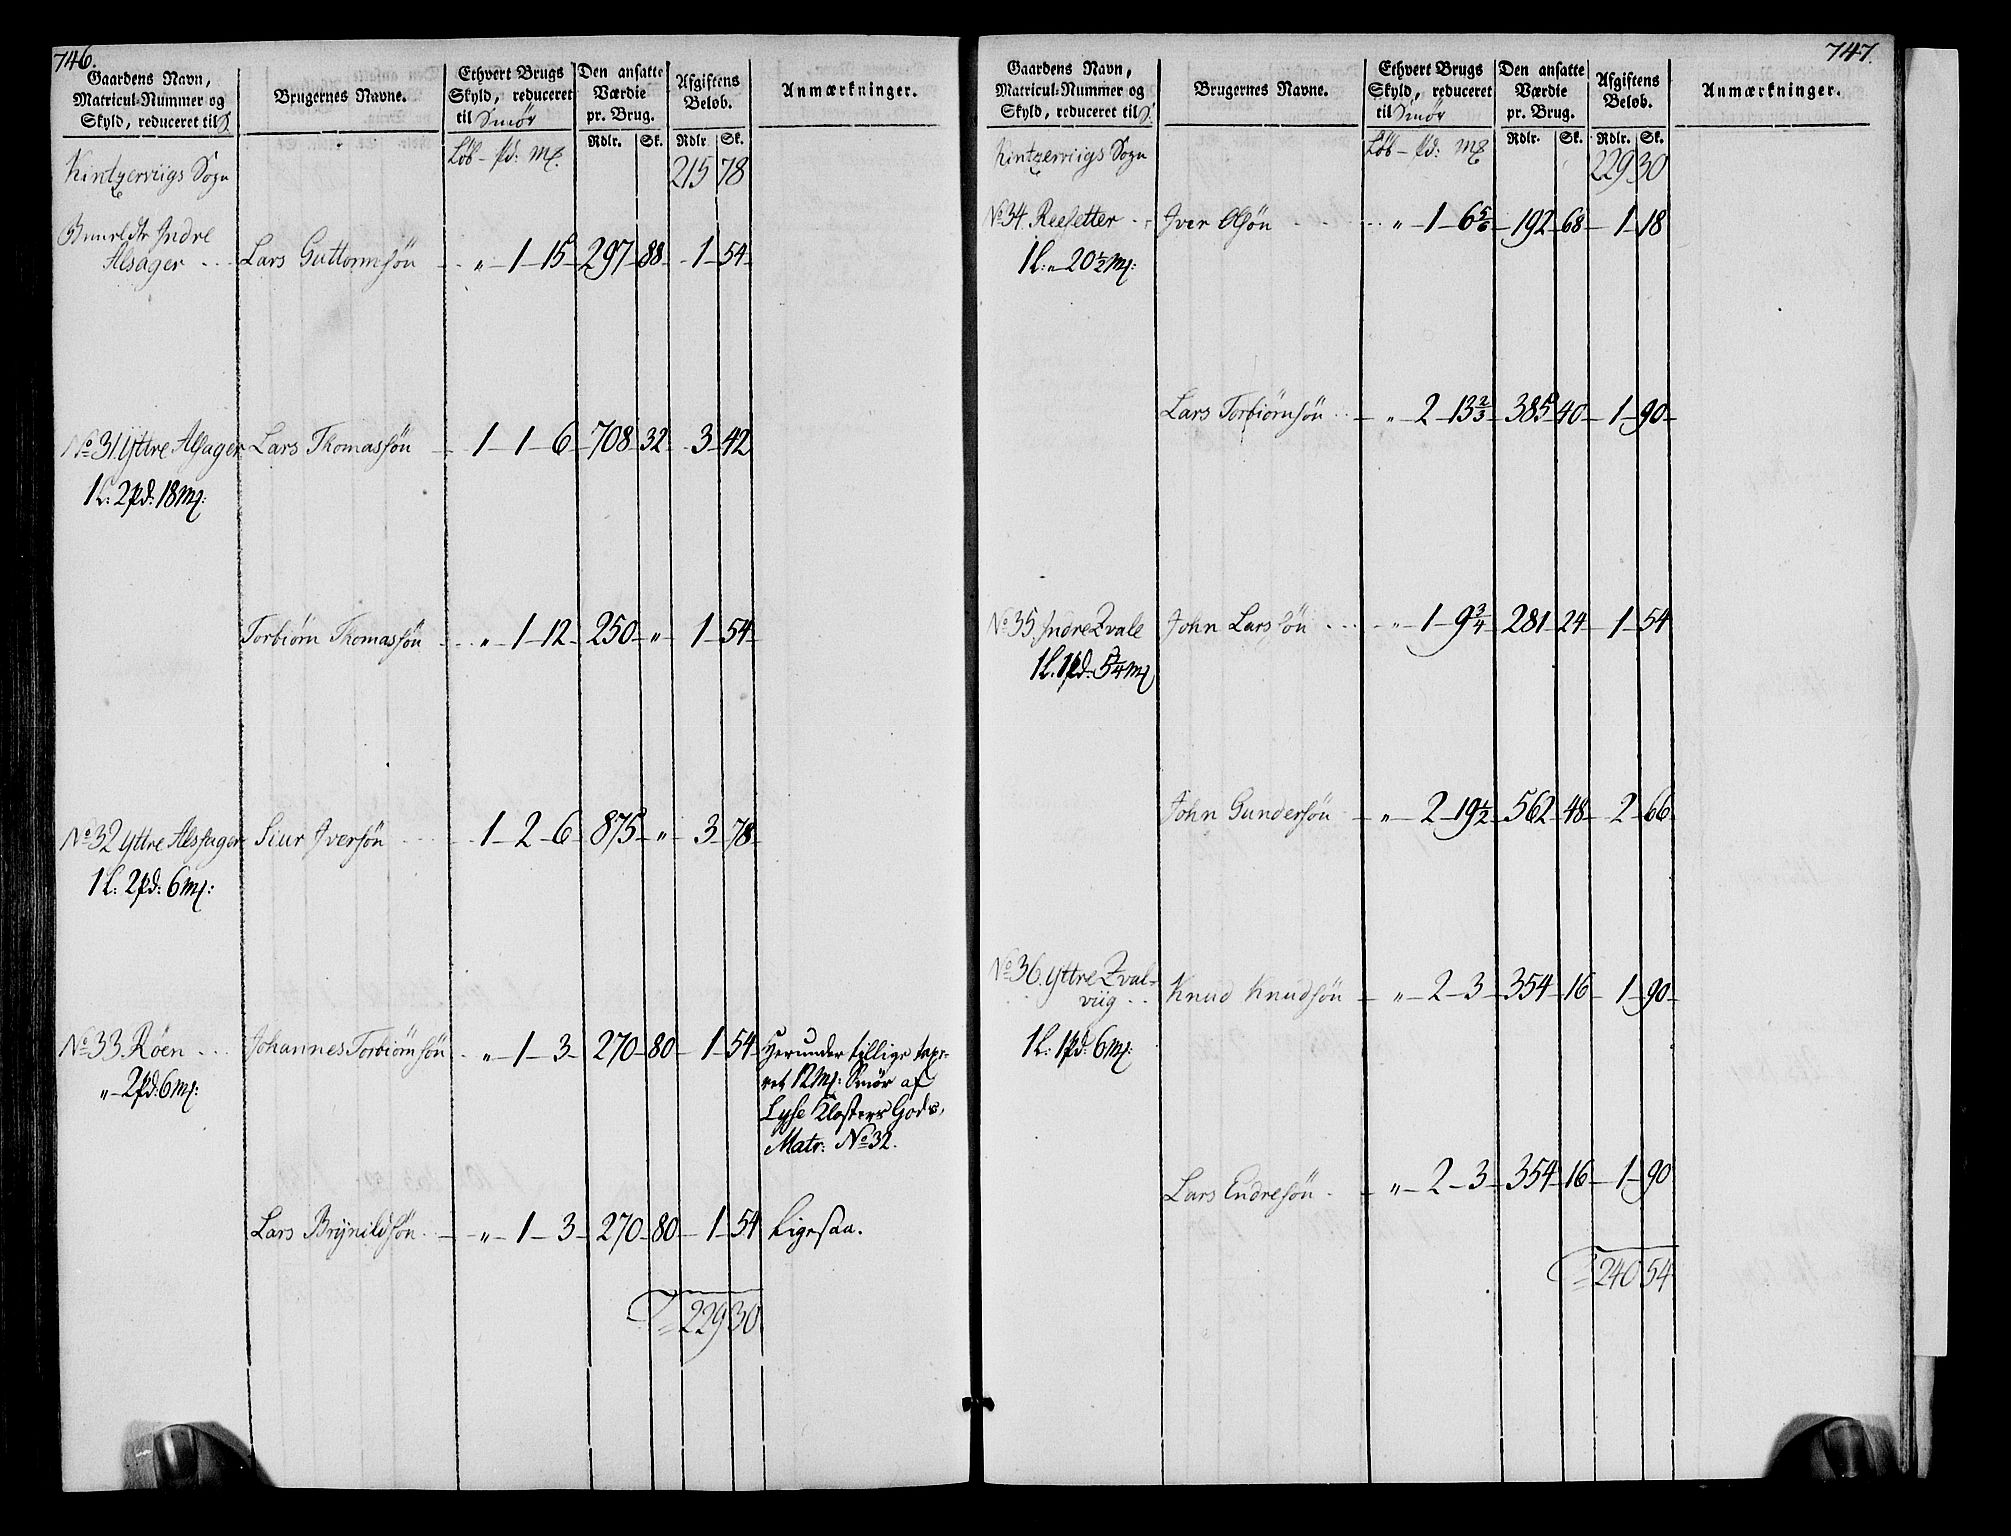 746.
Gaardens Navn, Matricul-Nummer og Skyld, reduceret til S. | Brugernes Navne. | Ethvert Brugs Skyld, reduceret til Smör | Den ansatte Værdie pr. Brug. | Afgiftens Beløb. | Anmærkninger.
Rdlr. Sk. Rdlr. Sk.
Kintzerviigs Sogn Löb – pd: mk. 215 78
Indre
Alsager ... Lars Guttormsön - „ – 1 – 15 – 297 – 88 – 1 – 54
No 31. Yttre Alsager Lars Thomassön – 1 – 1 – 6 – 708 – 32 – 3 – 42
1 L: 2 pd: 18 mk:
Torbiörn Thomassön - „ – 1 – 12 – 250 – „ – 1 – 54
No 32 Yttre Alssager Siur Iversön - 1 – 2 – 6 – 875 – „ – 3 – 78
1 L: 2 pd: 6 mk:
No 33. Röen ... Johannes Torbiörnsön - „ – 1 – 3 – 270 – 80 – 1 – 54 Herunder tillige taxe-
„ – 2 pd: 6 mk: ret 12 mk: Smör af
Lyse Klosters Gods,
Matr: No 32.
Lars Brynildsön - „ – 1 – 3 – 270 – 80 – 1 – 54 Ligesaa.
229 30
747.
Gaardens Navn, Matricul-Nummer og Skyld, reduceret til S. | Brugernes Navne. | Ethvert Brugs Skyld, reduceret til Smör | Den ansatte Værdie pr. Brug. | Afgiftens Beløb. | Anmærkninger.
Rdlr. Sk. Rdlr. Sk.
Kintzerviigs Sogn Löb – pd: mk 229 30
No 34. Reesetter - Iver Olsön - „ – 1 – 6 5/6 – 192 – 68 – 1 – 18
1 L: „ – 20 1/2 mk:
Lars Torbiörnsön - „ – 2 – 13 2/3 – 385 – 40 – 1 – 90
No 35. Indre Qvale John Larssön - „ – 1 – 9 3/4 – 281 – 24 – 1 – 54
1 L. 1 pd: 5 1/4 mk
John Gundersön - „ – 2 – 19 1/2 – 562 – 48 – 2 – 66
No 36. Yttre Qval-
viig - Knud Knudsön - „ – 2 – 3 – 354 – 16 – 1 – 90
1 L: 1 pd: 6 mk:
Lars Endresön - „ – 2 – 3 – 354 – 16 – 1 – 90
240 54